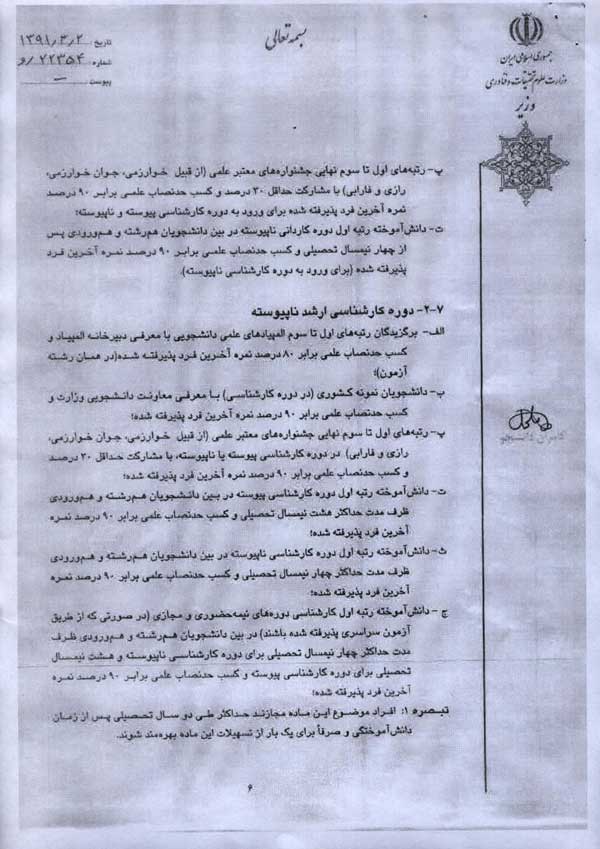 بسمه تعالی
جمهوری اسلامی ایران
وزارت علوم تحقیقات و فناوری
وزیر
تاریخ: ۱۳۹۱/۳/۲
شماره: ۷۲۳۵۴/و
پیوست: —
پ- رتبه‌های اول تا سوم نهایی جشنواره‌های معتبر علمی (از قبیل خوارزمی، جوان خوارزمی،
رازی و فارابی) با مشارکت حداقل ۳۰ درصد و کسب حدنصاب علمی برابر ۹۰ درصد
نمره آخرین فرد پذیرفته شده برای ورود به دوره کارشناسی پیوسته و ناپیوسته؛
ت- دانش‌آموخته رتبه اول دوره کاردانی ناپیوسته در بین دانشجویان هم‌رشته و هم‌ورودی پس
از چهار نیمسال تحصیلی و کسب حدنصاب علمی برابر ۹۰ درصد نمره آخرین فرد
پذیرفته شده (برای ورود به دوره کارشناسی ناپیوسته).
۷-۲- دوره کارشناسی ارشد ناپیوسته
الف- برگزیدگان رتبه‌های اول تا سوم المپیادهای علمی دانشجویی با معرفی دبیرخانه المپیاد و
کسب حدنصاب علمی برابر ۸۰ درصد نمره آخرین فرد پذیرفته شده(در همان رشته
آزمون)؛
ب- دانشجویان نمونه کشوری (در دوره کارشناسی) با معرفی معاونت دانشجویی وزارت و
کسب حدنصاب علمی برابر ۹۰ درصد نمره آخرین فرد پذیرفته شده؛
پ- رتبه‌های اول تا سوم نهایی جشنواره‌های معتبر علمی (از قبیل خوارزمی، جوان خوارزمی،
رازی و فارابی) در دوره کارشناسی پیوسته یا ناپیوسته، با مشارکت حداقل ۳۰ درصد
و کسب حدنصاب علمی برابر ۹۰ درصد نمره آخرین فرد پذیرفته شده؛
ت- دانش‌آموخته رتبه اول دوره کارشناسی پیوسته در بین دانشجویان هم‌رشته و هم‌ورودی
ظرف مدت حداکثر هشت نیمسال تحصیلی و کسب حدنصاب علمی برابر ۹۰ درصد نمره
آخرین فرد پذیرفته شده؛
ث- دانش‌آموخته رتبه اول دوره کارشناسی ناپیوسته در بین دانشجویان هم‌رشته و هم‌ورودی
ظرف مدت حداکثر چهار نیمسال تحصیلی و کسب حدنصاب علمی برابر ۹۰ درصد نمره
آخرین فرد پذیرفته شده؛
ج- دانش‌آموخته رتبه اول کارشناسی دوره‌های نیمه‌حضوری و مجازی (در صورتی که از طریق
آزمون سراسری پذیرفته شده باشند) در بین دانشجویان هم‌رشته و هم‌ورودی ظرف
مدت حداکثر چهار نیمسال تحصیلی برای دوره کارشناسی ناپیوسته و هشت نیمسال
تحصیلی برای دوره کارشناسی پیوسته و کسب حدنصاب علمی برابر ۹۰ درصد نمره
آخرین فرد پذیرفته شده؛
تبصره ۱: افراد موضوع این ماده مجازند حداکثر طی دو سال تحصیلی پس از زمان
دانش‌آموختگی و صرفاً برای یک بار از تسهیلات این ماده بهره‌مند شوند.
کامران دانشجو
۶